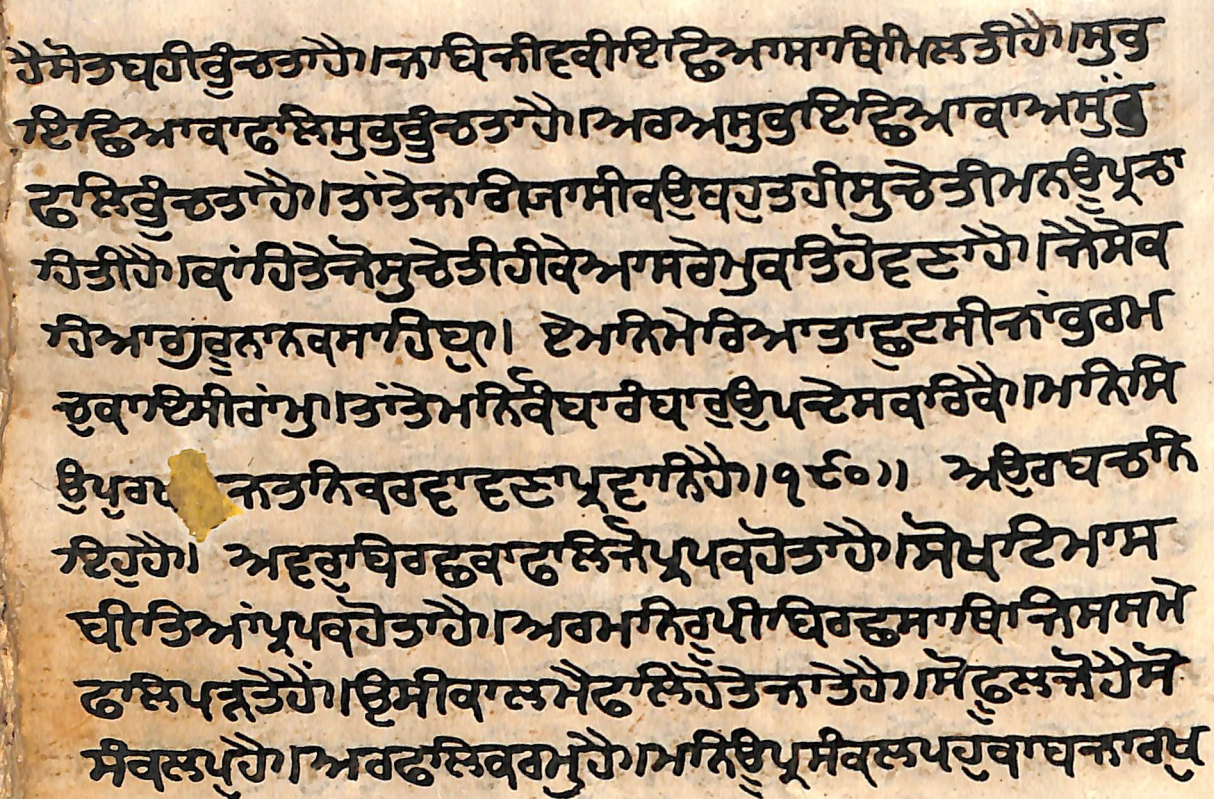 ਹੈਸੋਤਬਹੀਕੁੰਚਤਾਹੈ॥ਜਾਬਿਜੀਵਕੀਇਛਿਆਸਾਥਿਮਿਲਤੀਹੈ॥ਸੁਕੁ
ਇਛਿਆਕਾਫਲਿਸੁਕੁਕੁੰਚਤਾਹੈ॥ਅਰਅਸੁਕੁਇਛਿਆਕਾਅਸੁਕੁੰ
ਫਲਿਕੁੰਚਤਾਹੈ॥ਤਾਂਤੇਜਾਗਿਜਾਸੀਕਉਬਹੁਤਹੀਸੁਚੇਤੀਮਨਉਪ੍ਰਚਾ
ਹਿਤੀਹੈ॥ਕਾਂਹਿਤੇਜੋਸੁਚੇਤੀਹੀਕੇਆਸਰੇਮੁਕਤਿਹੋਵਣਾਹੈ॥ਜੈਸੇਕ
ਹਿਆਗੁਰੂਨਾਨਕਸਾਹਿਬ॥ ਏਮਨਿਮੇਰਿਆਤਾਛੁਟਸੀਜਾਂਭਰਮ
ਚੁਕਾਇਸੀਰਾਂਮੁ॥ਤਾਂਤੇਮਨਿਕੌਬਾਰੰਬਾਰੁਉਪਦੇਸਕਰਿਕੈ॥ਮਨਿਸਿ
ਉਪੁਰ ਜਤਨਿਕਰਵਾਵਣਾਪ੍ਰਵਾਨਿਹੈ॥੧੯੦॥ ਅਉਰਬਚਨਿ
ਇਹੁਹੈ॥ ਅਵਰੁਬਿਰਛਕਾਫਲਿਜੋਪ੍ਰਪਕਹੋਤਾਹੈ॥ਸੋਖਟਿਮਾਸ
ਬੀਤਿਆਂਪ੍ਰਪਕਹੋਤਾਹੈ॥ਅਰਮਨਿਰੂਪੀਬਿਰਛਸਾਥਿਜਿਸਸਮੇ
ਫਲਿਪਜਤੇਹੈਂ॥ਉਸੀਕਾਲਮੈਫਲਿਹੋਤੇਜਾਤੇਹੈ॥ਸੋਫੂਲਜੋਹੈਸੋ
ਸੰਕਲਪੁਹੈ॥ਅਰਫਲਿਕਰਮੁਹੈ॥ਮਨਿਉਪ੍ਰਸੰਕਲਪਹੁਕਾਬਜਾਰਖੁ